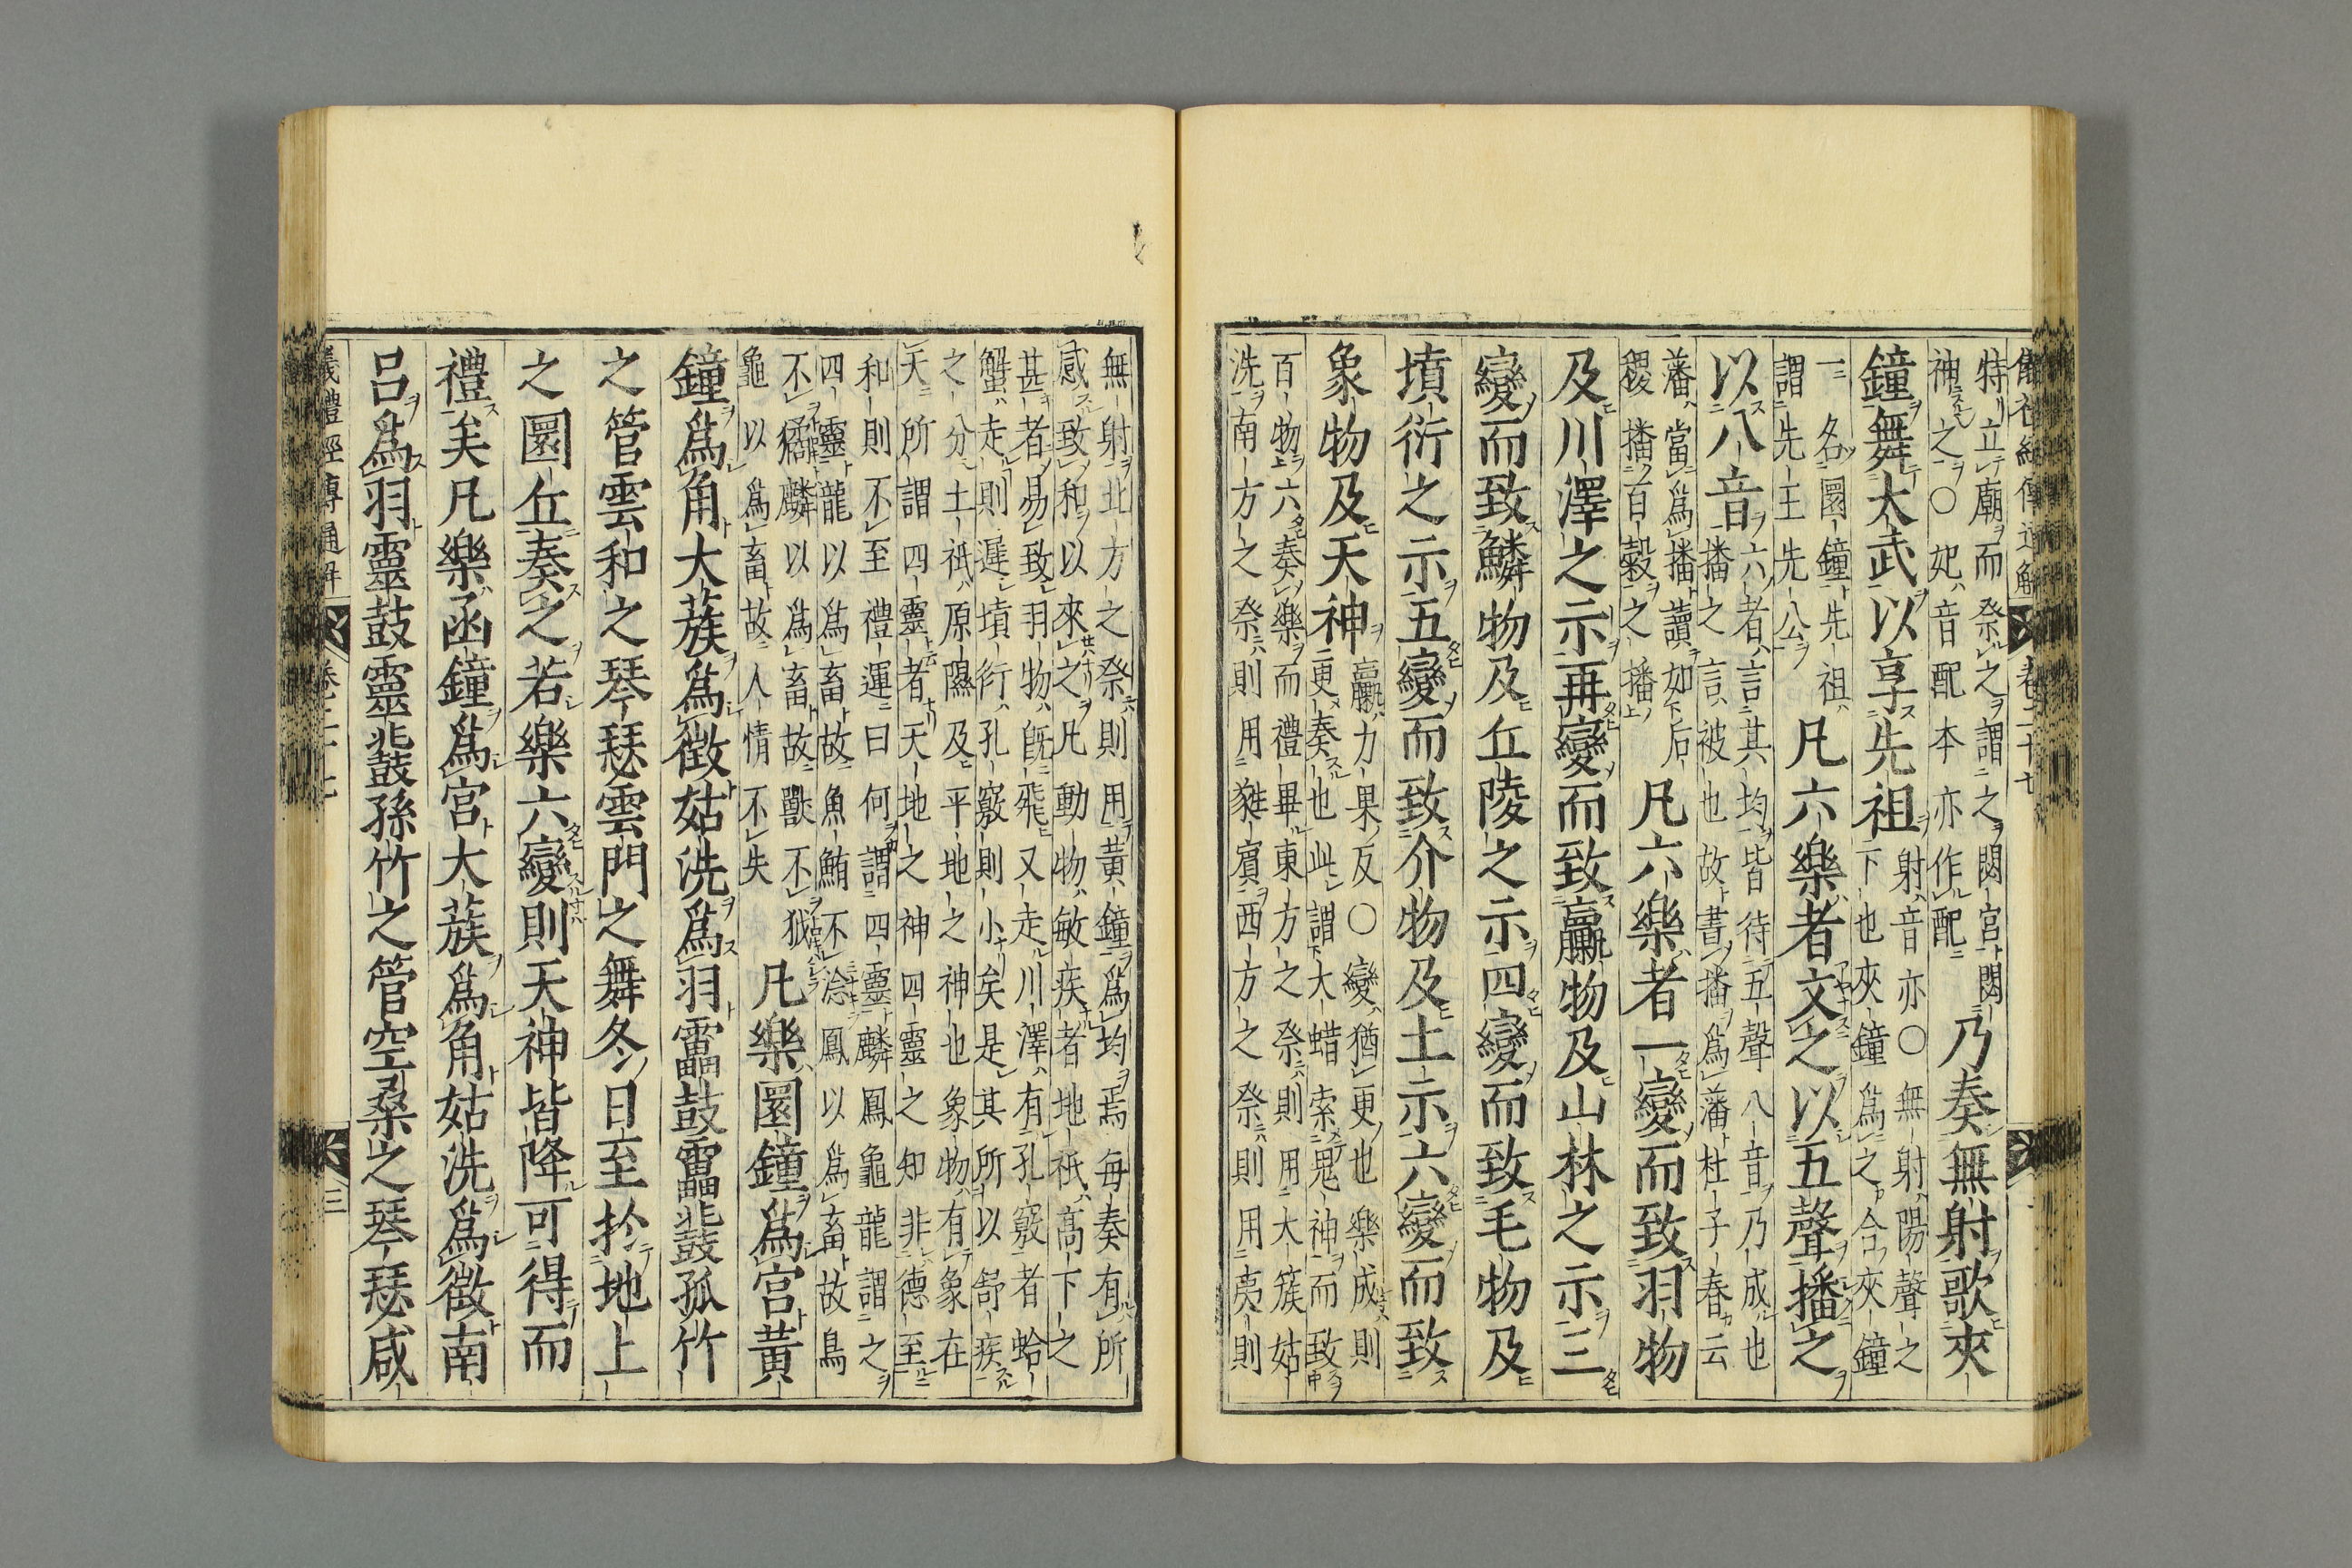 儀禮經傳通解 卷二十七
特立廟而祭之謂之閟宮閟
神之○妃音配本亦作配
乃奏無射歌夾
鐘舞大武以享先祖
射音亦○無射陽聲之
下也夾鐘爲之合夾鐘
一名圜鐘先祖
謂先王先公
凡六樂者文之以五聲播之
以八音
六者言其均皆待五聲八音乃成也
播之言被也故書播爲藩杜子春云
藩當爲播讀如后
稷播百穀之播
凡六樂者一變而致羽物
及川澤之示再變而致臝物及山林之示三
變而致鱗物及丘陵之示四變而致毛物及
墳衍之示五變而致介物及土示六變而致
象物及天神
臝力果反○變猶更也樂成則
更奏也此謂大蜡索鬼神而致
百物六奏樂而禮畢東方之祭則用大簇姑
洗南方之祭則用蕤賓西方之祭則用夷則
無射北方之祭則用黃鐘爲均焉每奏有所
感致和以來之凡動物敏疾者地祇高下之
甚者易致羽物既飛又走川澤有孔竅者蛤
蟹走則遲墳衍孔竅則小矣是其所以舒疾
之分土祇原隰及平地之神也象物有象在
天所謂四靈者天地之神四靈之知非德至
和則不至禮運曰何謂四靈麟鳳龜龍謂之
四靈龍以爲畜故魚鮪不淰鳳以爲畜故鳥
不獝麟以爲畜故獸不狘
龜以爲畜故人情不失
凡樂圜鐘爲宮黃
鐘爲角大蔟爲徵姑洗爲羽靁鼓靁鼗孤竹
之管雲和之琴瑟雲門之舞冬日至於地上
之圜丘奏之若樂六變則天神皆降可得而
禮矣凡樂函鐘爲宮大蔟爲角姑洗爲徵南
呂爲羽靈鼓靈鼗孫竹之管空桑之琴瑟咸
儀禮經傳通解 卷二十七 三